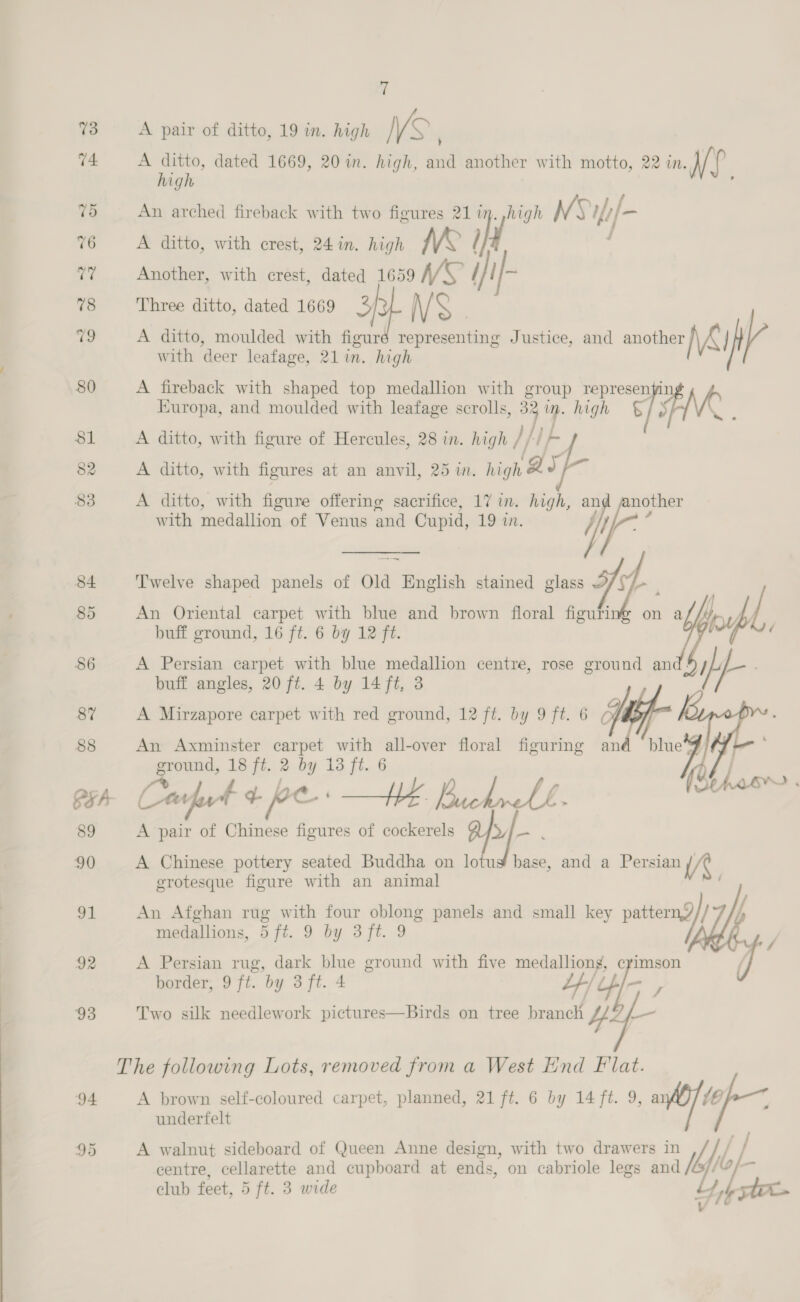 7
73 A pair of ditto, 19 in. high NS
74 A ditto, dated 1669, 20 in. high, and another with motto, 22 in. NS
high
75 An arched fireback with two figures 21 in. high NS
76 A ditto, with crest, 24 in. high NS
77 Another, with crest, dated 1659 NS
78 Three ditto, dated 1669 NS
79 A ditto, moulded with figure representing Justice, and another
with deer leafage, 21 in. high
80 A fireback with shaped top medallion with group representing
Europa, and moulded with leafage scrolls, 32 in. high
81 A ditto, with figure of Hercules, 28 in. high
82 A ditto, with figures at an anvil, 25 in. high
83 A ditto, with figure offering sacrifice, 17 in. high, and another
with medallion of Venus and Cupid, 19 in.
84 Twelve shaped panels of Old English stained glass
85 An Oriental carpet with blue and brown floral figuring on a
buff ground, 16 ft. 6 by 12 ft.
86 A Persian carpet with blue medallion centre, rose ground and
buff angles, 20 ft. 4 by 14 ft, 3
87 A Mirzapore carpet with red ground, 12 ft. by 9 ft. 6
88 An Axminster carpet with all-over floral figuring and blue
ground, 18 ft. 2 by 13 ft. 6
88A Carpet & pce.
89 A pair of Chinese figures of cockerels
90 A Chinese pottery seated Buddha on lotus base, and a Persian
grotesque figure with an animal
91 An Afghan rug with four oblong panels and small key pattern
medallions, 5 ft. 9 by 3 ft. 9
92 A Persian rug, dark blue ground with five medallions, crimson
border, 9 ft. by 3 ft. 4
93 Two silk needlework pictures—Birds on tree branch
The following Lots, removed from a West End Flat.
94 A brown self-coloured carpet, planned, 21 ft. 6 by 14 ft. 9, and
underfelt
95 A walnut sideboard of Queen Anne design, with two drawers in
centre, cellarette and cupboard at ends, on cabriole legs and
club feet, 5 ft. 3 wide